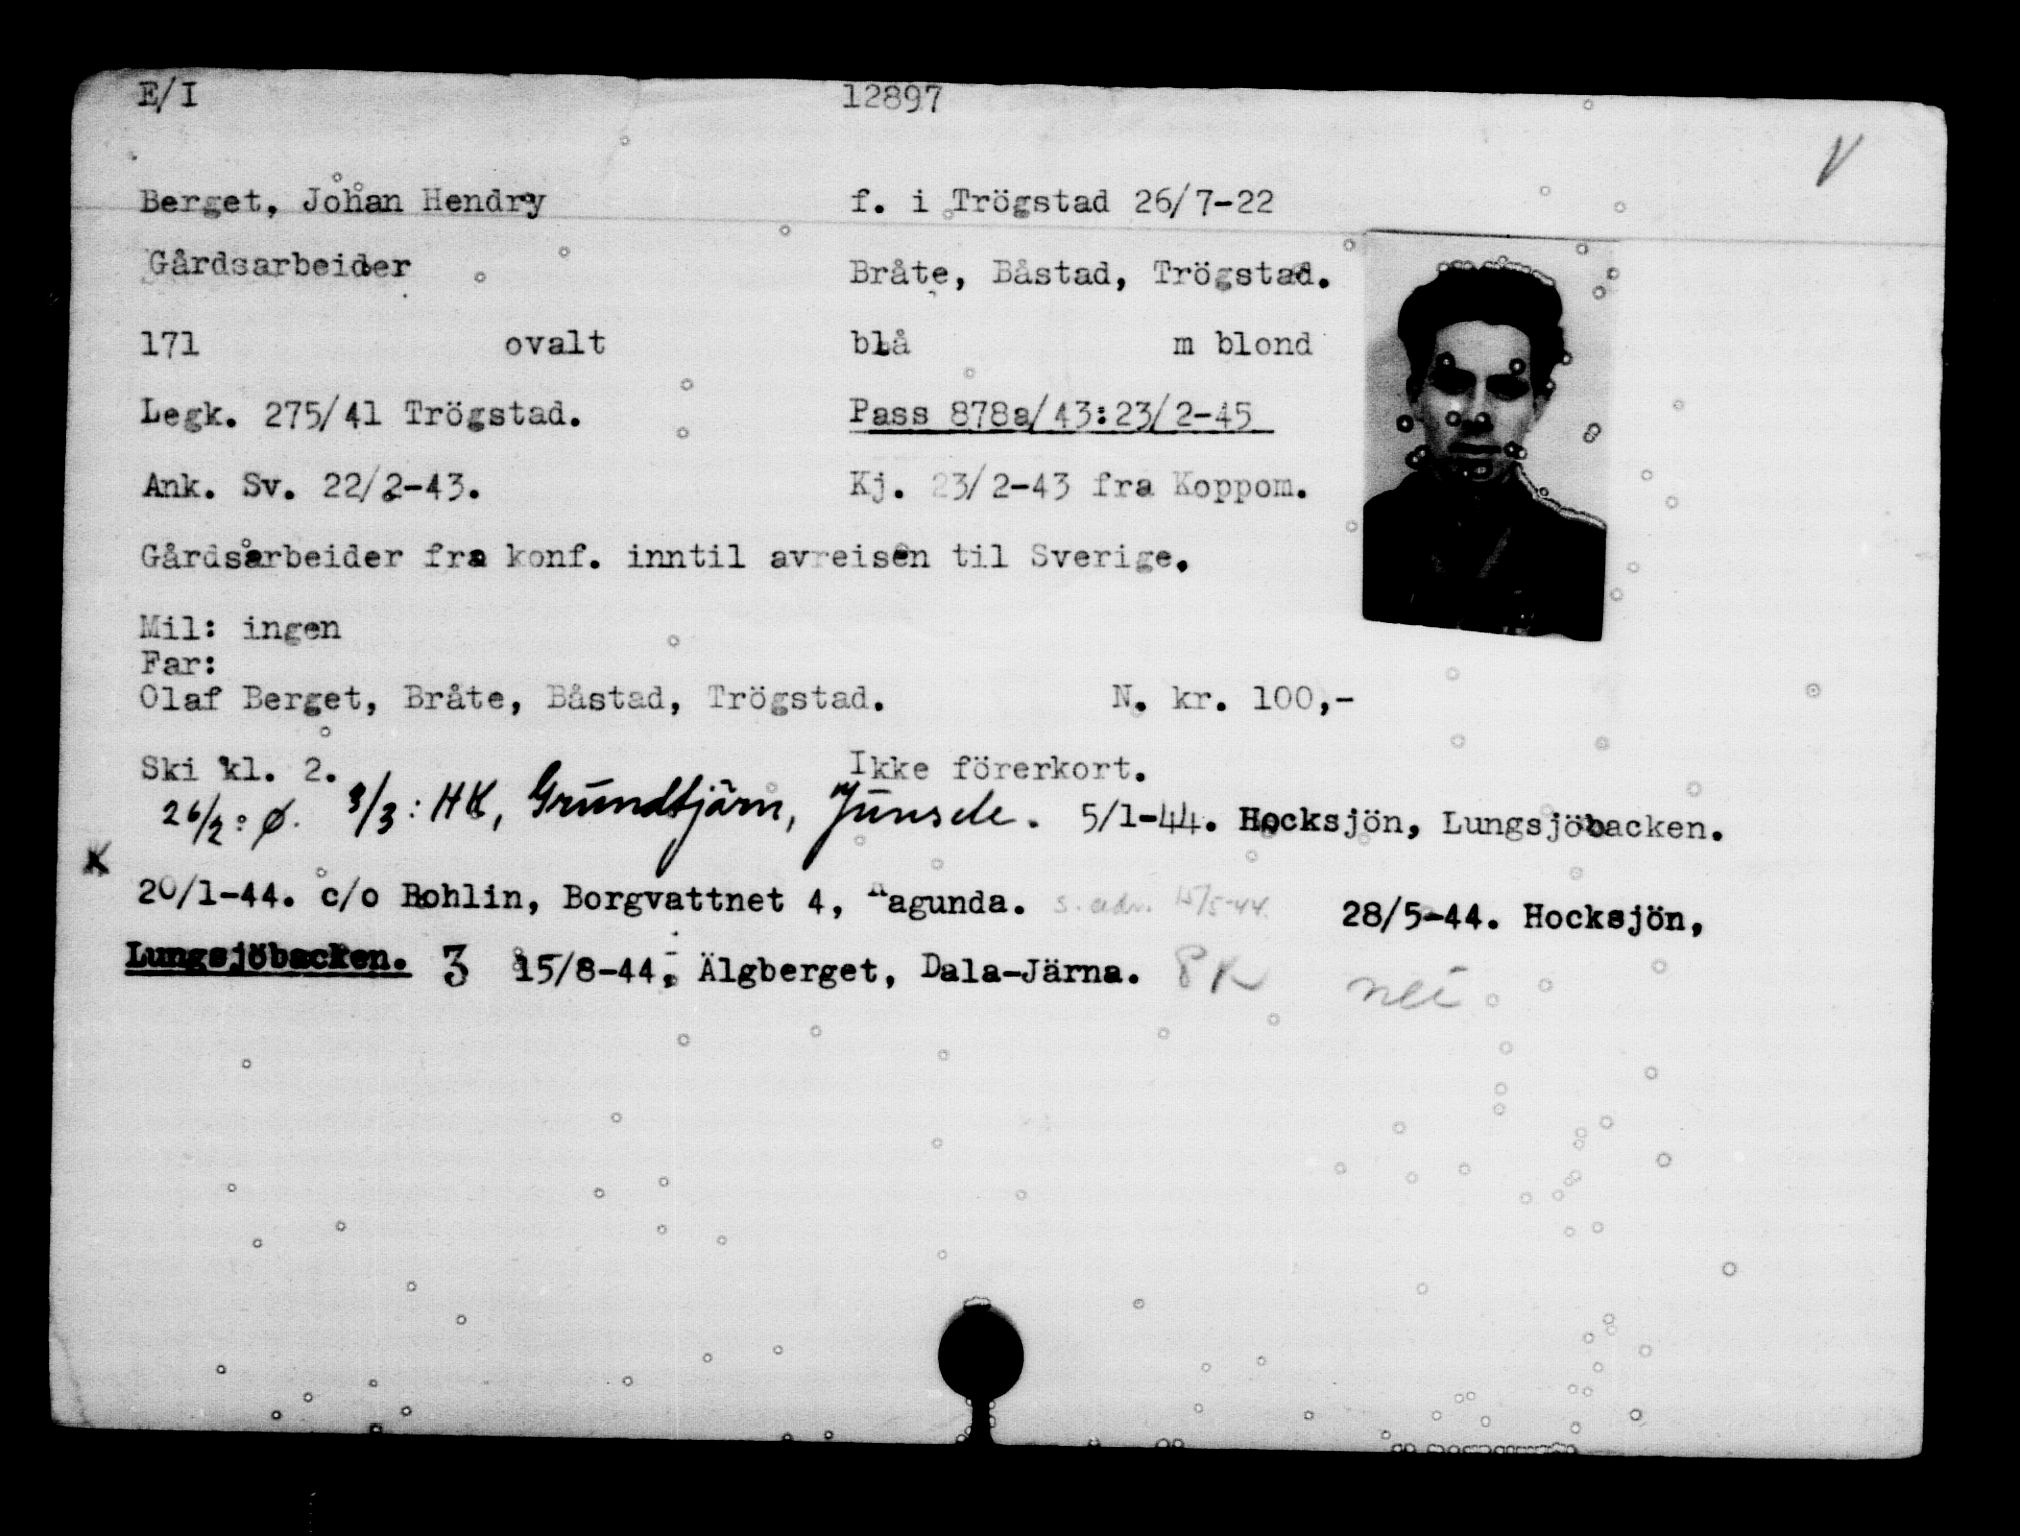 E/I 12897
V
Berget, Johan Hendry f. i Trögstad 26/7-22
Gårdsarbeider Bråte, Båstad, Trögstad.
171 ovalt blå m blond
Legk. 275/41 Trögstad. Pass 878a/43:23/2-45
Ank. Sv. 22/2-43. Kj. 23/2-43 fra Koppom.
Gårdsarbeider fra konf. inntil avreisen til Sverige.
Mil: ingen
Far:
Olaf Berget, Bråte, Båstad, Trögstad. N. kr. 100,-
Ski kl. 2. Ikke förerkort.
26/2: Ø. 3/3: HK, Grundtjärn, Junsele. 5/1-44. Hocksjön, Lungsjöbacken.
K
20/1-44. c/o Bohlin, Borgvattnet 4, Hagunda. s. adr. 15/5-44. 28/5-44. Hocksjön,
Lungsjöbacken. 3 15/8-44, Älgberget, Dala-Järna. 8K nei